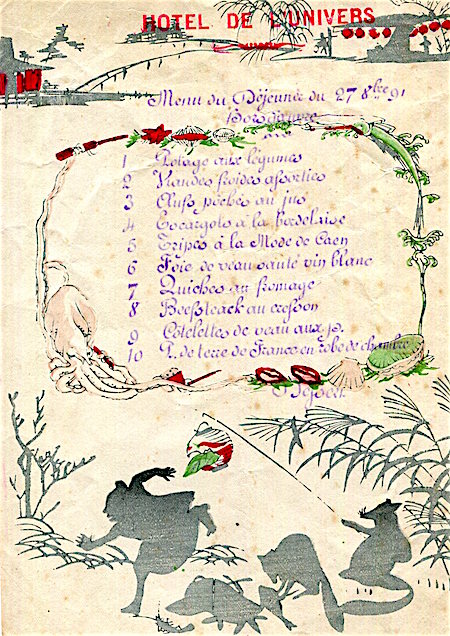 HOTEL DE L'UNIVERS
Menu du Déjeuner du 27 8bre 91
Hors d'œuvre
1 Potage aux légumes
2 Viandes froides assorties
3 Œufs pochés au jus
4 Escargots à la Bordelaise
5 Tripes à la Mode de Caen
6 Foie de veau sauté vin blanc
7 Quiches au fromage
8 Beefsteack au cresson
9 Côtelettes de veau aux
10 P. de terre de France en robe de chambre
Dessert